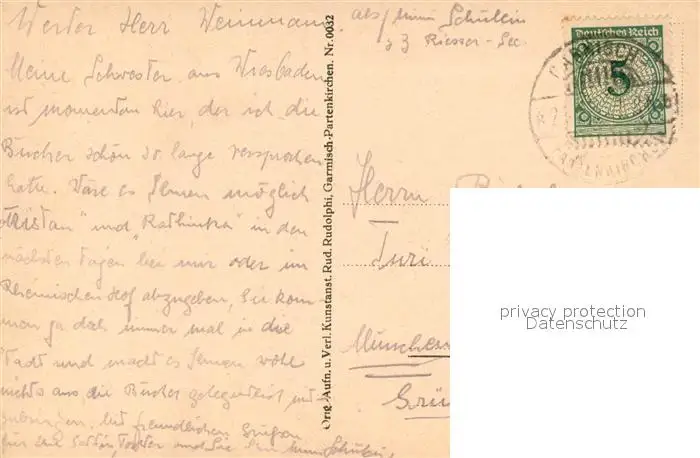 Werter Herr Weinmann.
Meine Schwester aus Wiesbaden
ist momentan hier, der ich die
Bücher schon so lange versprochen
hatte. Wäre es Ihnen möglich
"Tristan" und "Kathinka" in den
nächsten Tagen bei mir oder im
Rheinischen Hof abzugeben, Sie kom-
men ja doch immer mal in die
Stadt und macht es Ihnen wohl
nichts aus die Bücher gelegentlich mit-
zubringen. Mit freundlichen Grüßen
für und Sie Schülein
Orig.-Aufn. u. Verl. Kunstanst. Rud. Rudolphi, Garmisch-Partenkirchen. Nr. 0032
abs/ Schülein
z Z Riesser-See
Deutsches Reich
5
GARMISCH
PARTENKIRCHEN
Herrn
München
privacy protection
Datenschutz